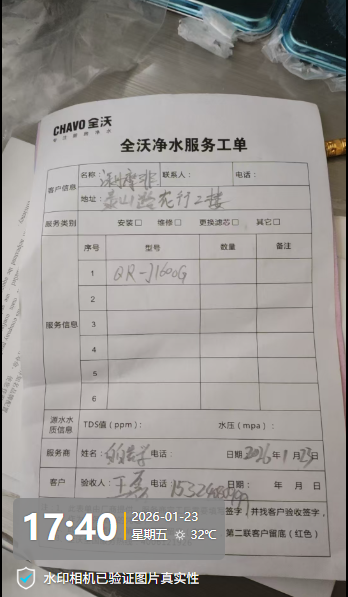 CHAVO 全沃
全沃净水服务工单
客户信息 名称： 联系人： 电话：
地址： 2楼
服务类别 安装□ 维修□ 更换滤芯□ 其它□
服务信息 序号 型号 数量 备注
1 QR-J1600G
2
3
4
5
6
源水水质信息 TDS值（ppm）： 水压（mpa）：
服务商 姓名： 电话： 日期 2026年1月23日
客户 验收人： 电话 日期 年 月 日
签字，并找客户验收签字，
第二联客户留底（红色）
17:40
2026-01-23
星期五 32℃
水印相机已验证图片真实性